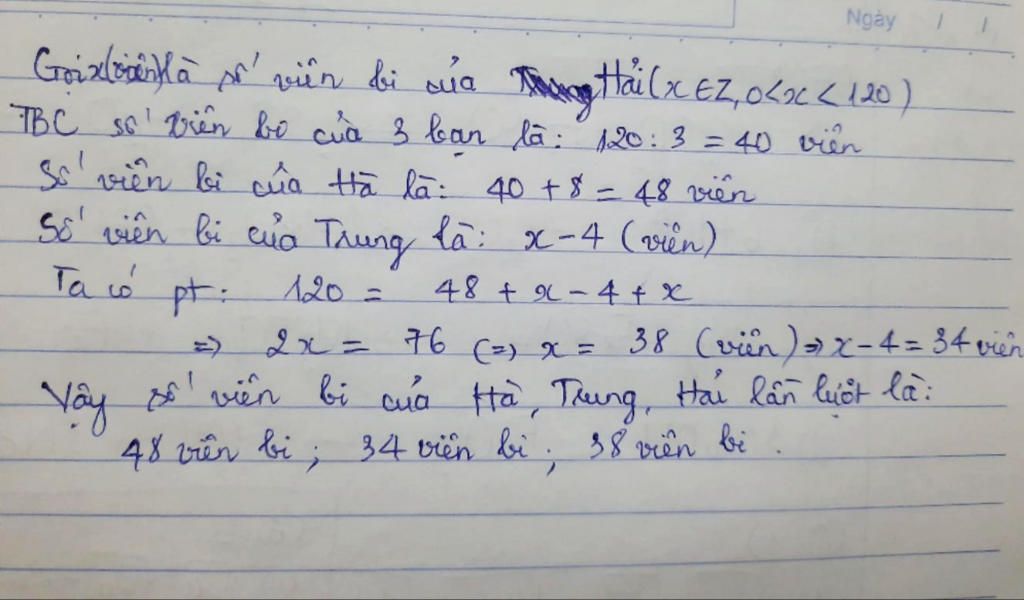 Ngày / /
Gọi x(viên) là số viên bi của Hải (x ∈ Z, 0 < x < 120)
TBC số viên bi của 3 bạn là: 120 : 3 = 40 viên
Số viên bi của Hà là: 40 + 8 = 48 viên
Số viên bi của Trung là: x - 4 (viên)
Ta có pt: 120 = 48 + x - 4 + x
=> 2x = 76 (=) x = 38 (viên) => x - 4 = 34 viên
Vậy số viên bi của Hà, Trung, Hải lần lượt là:
48 viên bi ; 34 viên bi ; 38 viên bi .